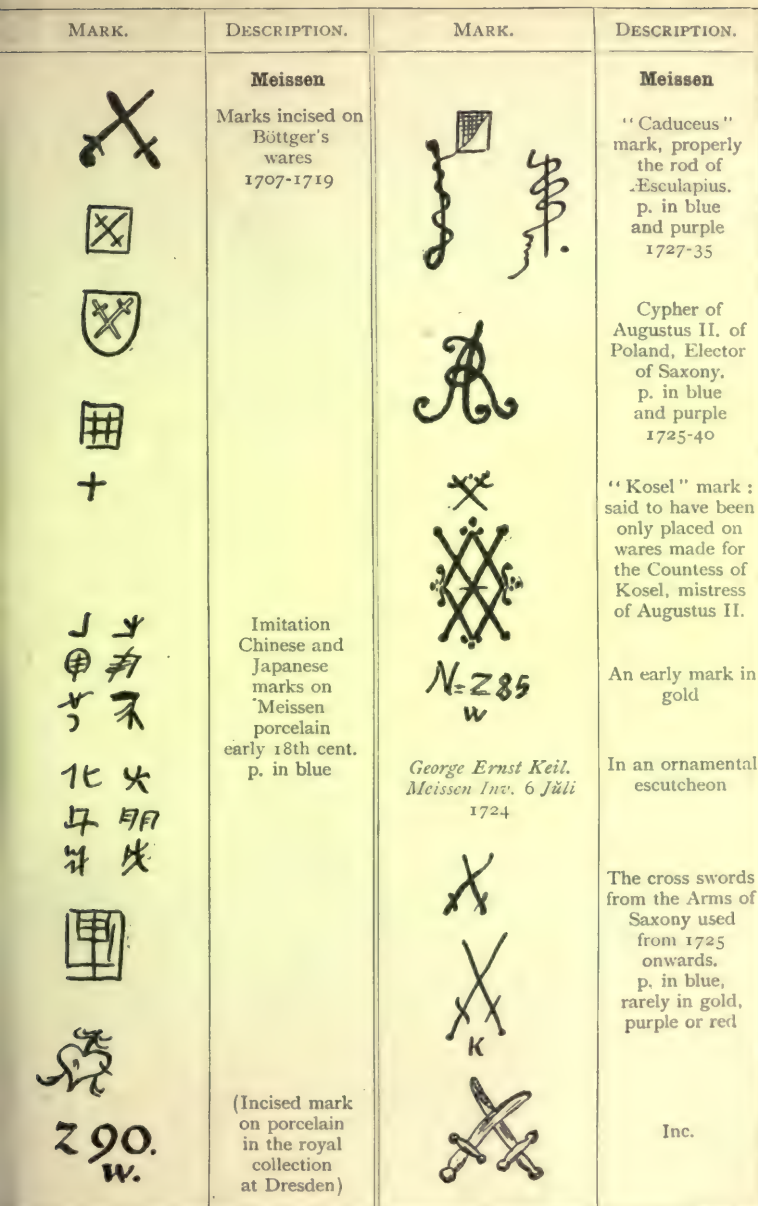 MARK.
DESCRIPTION.
MARK.
DESCRIPTION.
Meissen
Marks incised on
Böttger's
wares
1707-1719
Imitation
Chinese and
Japanese
marks on
Meissen
porcelain
early 18th cent.
p. in blue
Z 90.
w.
(Incised mark
on porcelain
in the royal
collection
at Dresden)
Meissen
"Caduceus"
mark, properly
the rod of
Æsculapius.
p. in blue
and purple
1727-35
AR
Cypher of
Augustus II. of
Poland, Elector
of Saxony.
p. in blue
and purple
1725-40
"Kosel" mark :
said to have been
only placed on
wares made for
the Countess of
Kosel, mistress
of Augustus II.
N=Z85
w
An early mark in
gold
George Ernst Keil.
Meissen Inv. 6 Jŭli
1724
In an ornamental
escutcheon
The cross swords
from the Arms of
Saxony used
from 1725
onwards.
p. in blue,
rarely in gold,
purple or red
K
Inc.